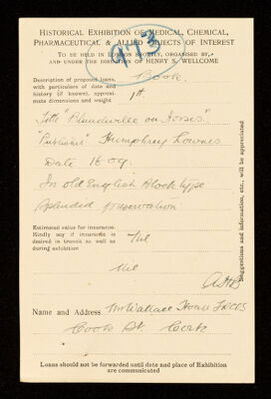 HISTORICAL EXHIBITION OF MEDICAL, CHEMICAL,
PHARMACEUTICAL & ALLIED OBJECTS OF INTEREST
TO BE HELD IN LONDON SHORTLY, ORGANISED BY,
AND UNDER THE DIRECTION OF HENRY S. WELLCOME
943
Description of proposed loans, Book
with particulars of date and
history (if known), approxi-
mate dimensions and weight
Title "Blundwilee on Horses".
"Published" Humphrey Lownes
Date 1609
In old English Block type
Splendid preservation
Estimated value for insurance. Nil
Kindly say if insurance is
desired in transit as well as
during exhibition
Nil
Name and Address Mr Wallace House FRCVS
Cook St. Cork
Loans should not be forwarded until date and place of Exhibition
are communicated
Suggestions and information, etc., will be appreciated